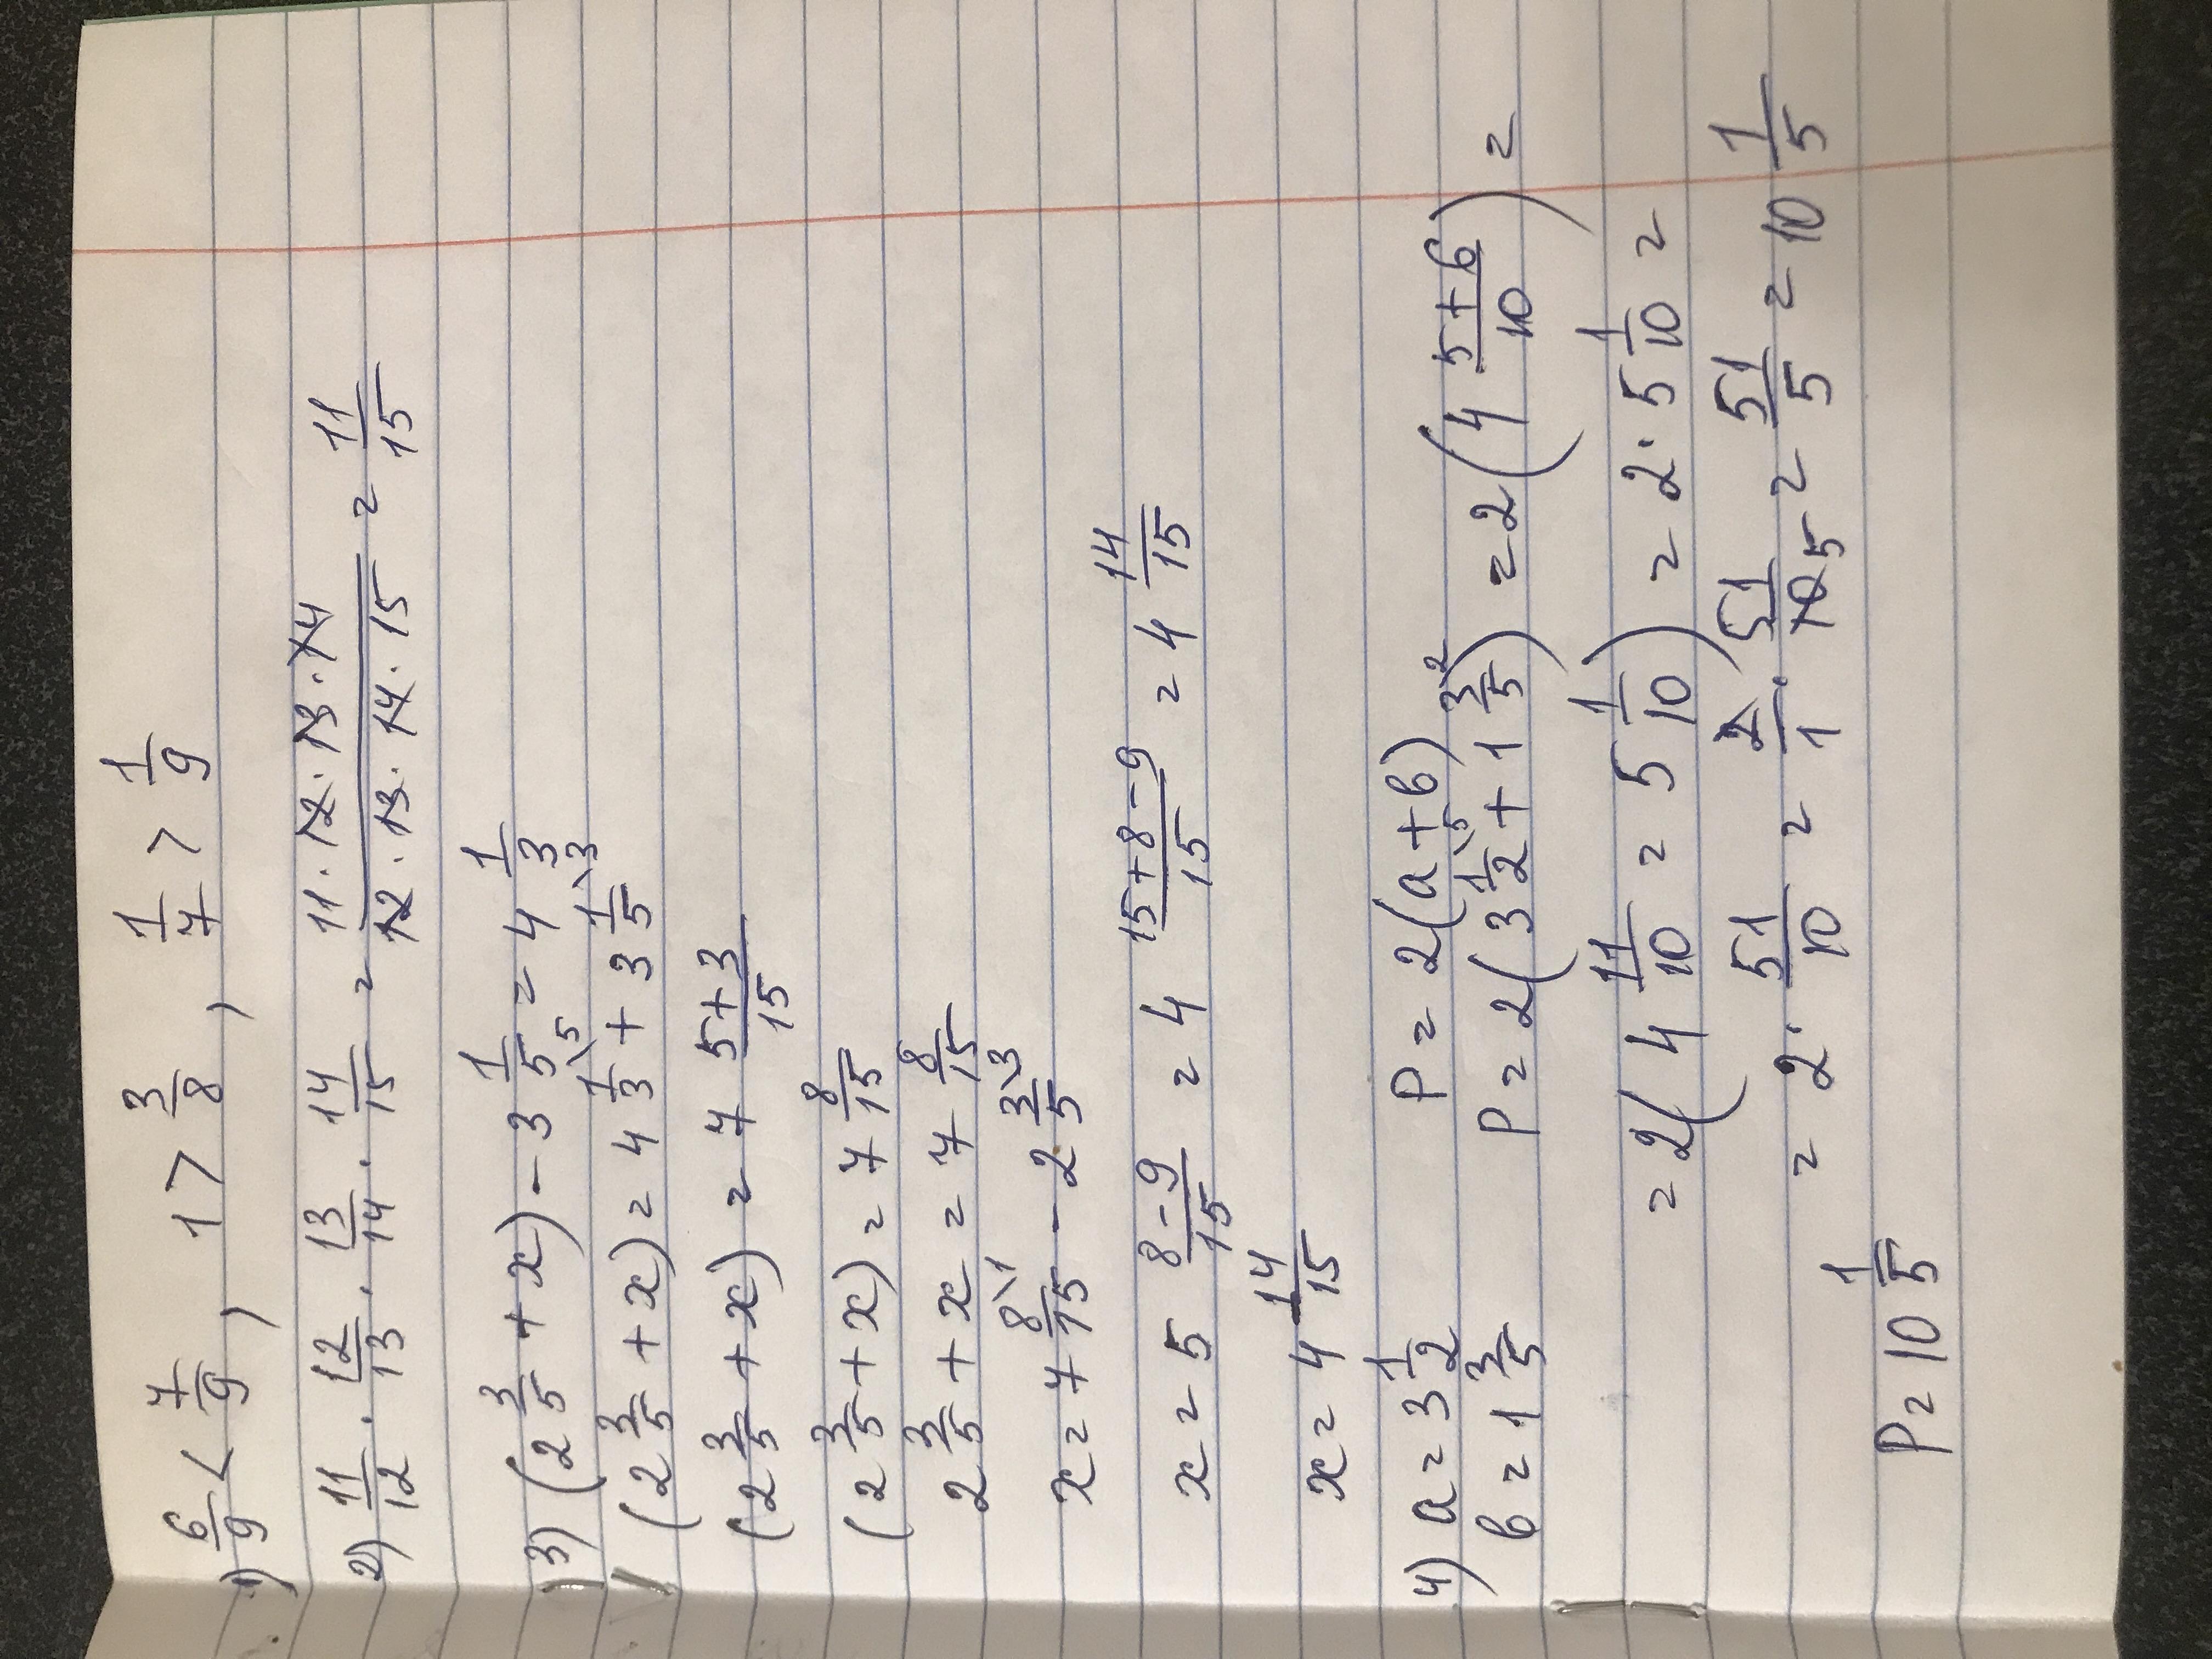 1) 6/9 < 7/9, 1 > 3/8, 1/7 > 1/9
2) 11/12 · 12/13 · 13/14 · 14/15 = 11·12·13·14/12·13·14·15 = 11/15
3) (2 3/5 + x) - 3 1/5 = 4 1/3
(2 3/5 + x) = 4 1/3\5 + 3 1/5\3
(2 3/5 + x) = 7 5+3/15
(2 3/5 + x) = 7 8/15
2 3/5 + x = 7 8/15
x = 7 8/15\1 - 2 3/5\3
x = 5 8-9/15 = 4 15+8-9/15 = 4 14/15
x = 4 14/15
4) a = 3 1/2 P = 2(a+b)
b = 1 3/5 P = 2(3 1/2\5 + 1 3/5\2) = 2(4 5+6/10) =
= 2(4 11/10 = 5 1/10) = 2 · 5 1/10 =
= 2 · 51/10 = 2/1 · 51/10 5 = 51/5 = 10 1/5
P = 10 1/5